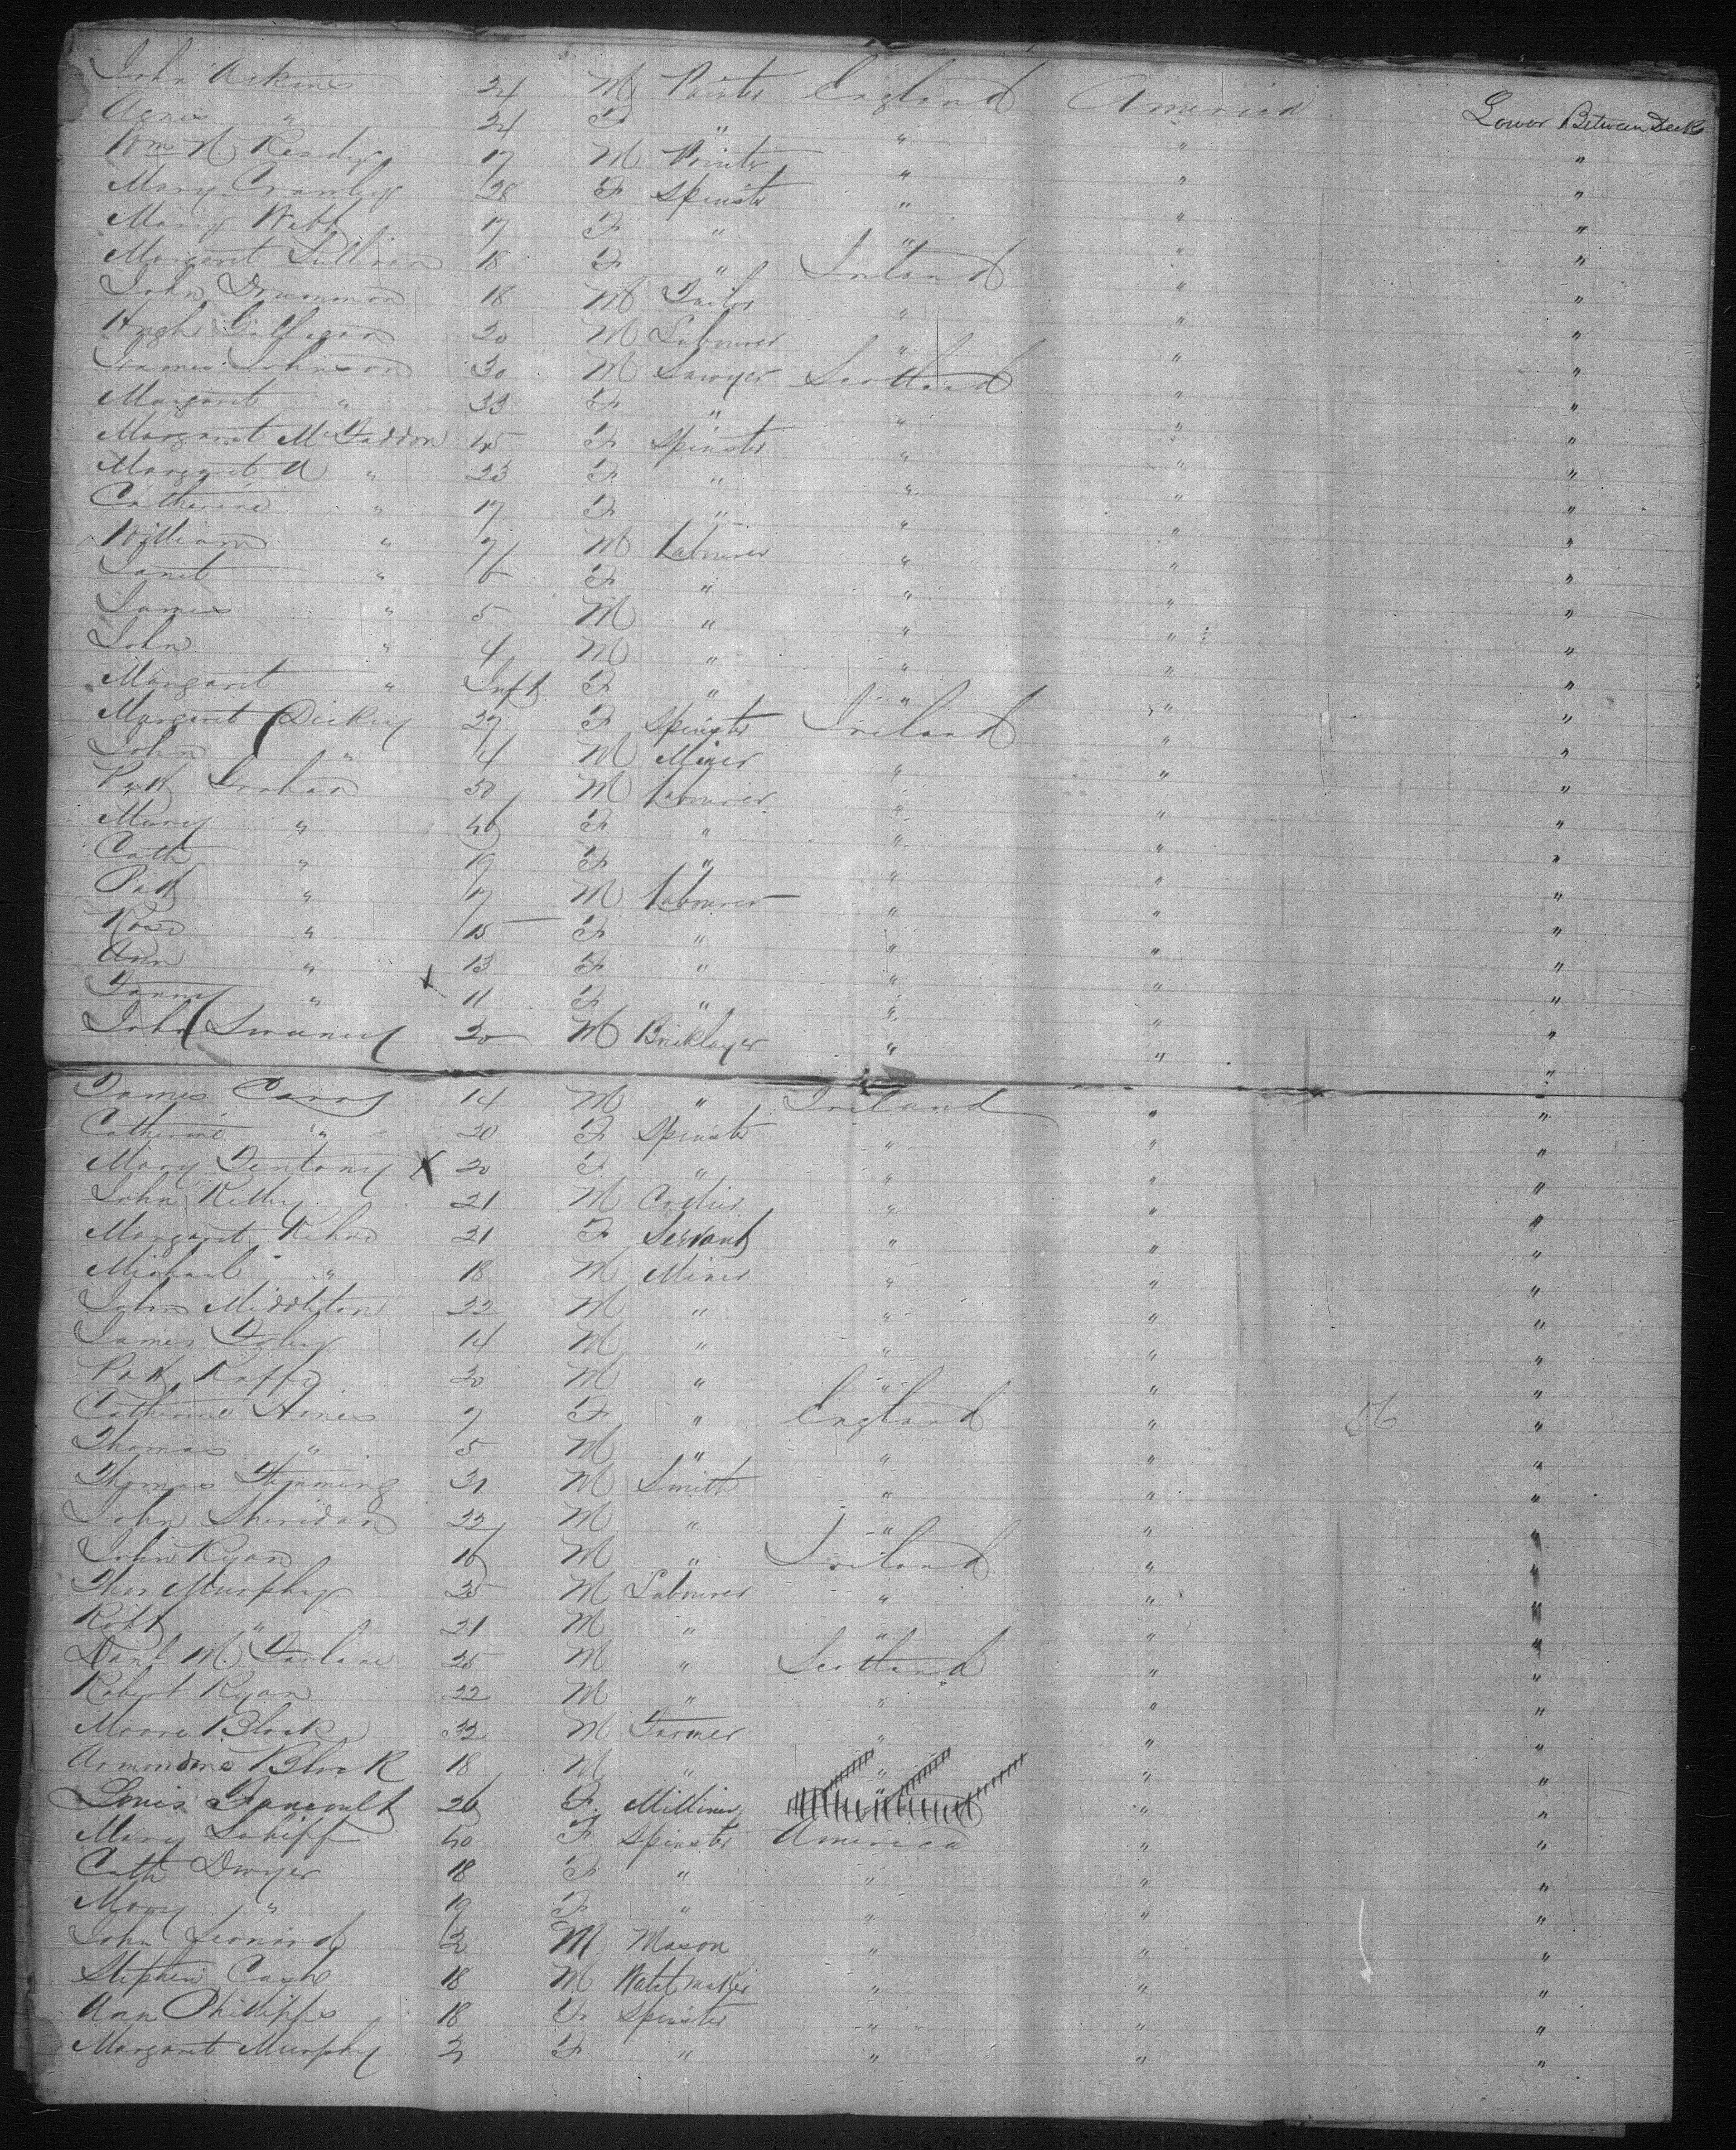 John Atkins 24 M Painter England America Lower Between Decks
Agnes " 24 F " " " "
Wm H Ready 17 M Painter " " "
Mary Crawley 28 F Spinster " " "
Mary Webb 17 F " " " "
Margaret Sullivan 18 F " Ireland " "
John Drummon 18 M Tailor " " "
Hugh Gallagan 20 M Labourer " " "
James Johnson 30 M Sawyer Scotland " "
Margaret " 33 F " " " "
Margaret McFaddon 45 F Spinster " " "
Margaret A " 23 F " " " "
Catherine " 17 F " " " "
William " 7 M Labourer " " "
Janet " 6 F " " " "
James " 5 M " " " "
John " 4 M " " " "
Margaret " Inft F " " " "
Margaret Dickey 27 F Spinster Ireland " "
John " 4 M Miner " " "
Patk Graham 50 M Labourer " " "
Mary " 46 F " " " "
Cath " 19 F " " " "
Patk " 17 M Labourer " " "
Rose " 15 F " " " "
Ann " 13 F " " " "
Fanny " X 11 F " " " "
John Swaney 20 M Bricklayer " " "
James Carns 14 M " Ireland " "
Catherine " 20 F Spinster " " "
Mary X 20 F " " " "
John Kelley 21 M " " "
Margaret Kehoe 21 F Servant " " "
Michael " 18 M Miner " " "
John Middleton 22 M " " " "
James Foley 14 M " " " "
Patk 20 M " " " "
Catherine Hines 7 F " England " "
Thomas " 5 M " " " "
Thomas Flemming 31 M Smith " " "
John Sheridan 22 M " " " "
John Ryan 16 M " Ireland " "
Thos Murphy 25 M Labourer " " "
Robt " 21 M " " " "
Danl McFarlane 25 M " Scotland " "
Robert Ryan 22 M " " " "
Moore Block 32 M Farmer " " "
Block 18 M " " " "
Louis 26 F Milliner " "
Mary 40 F Spinster America " "
Cath Dwyer 18 F " " " "
Mary " 19 F " " " "
John Leonard 2 M Mason " " "
Stephen Cash 18 M Watchmaker " " "
Ann Phillipps 18 F Spinster " " "
Margaret Murphy 2 F " " " "
56